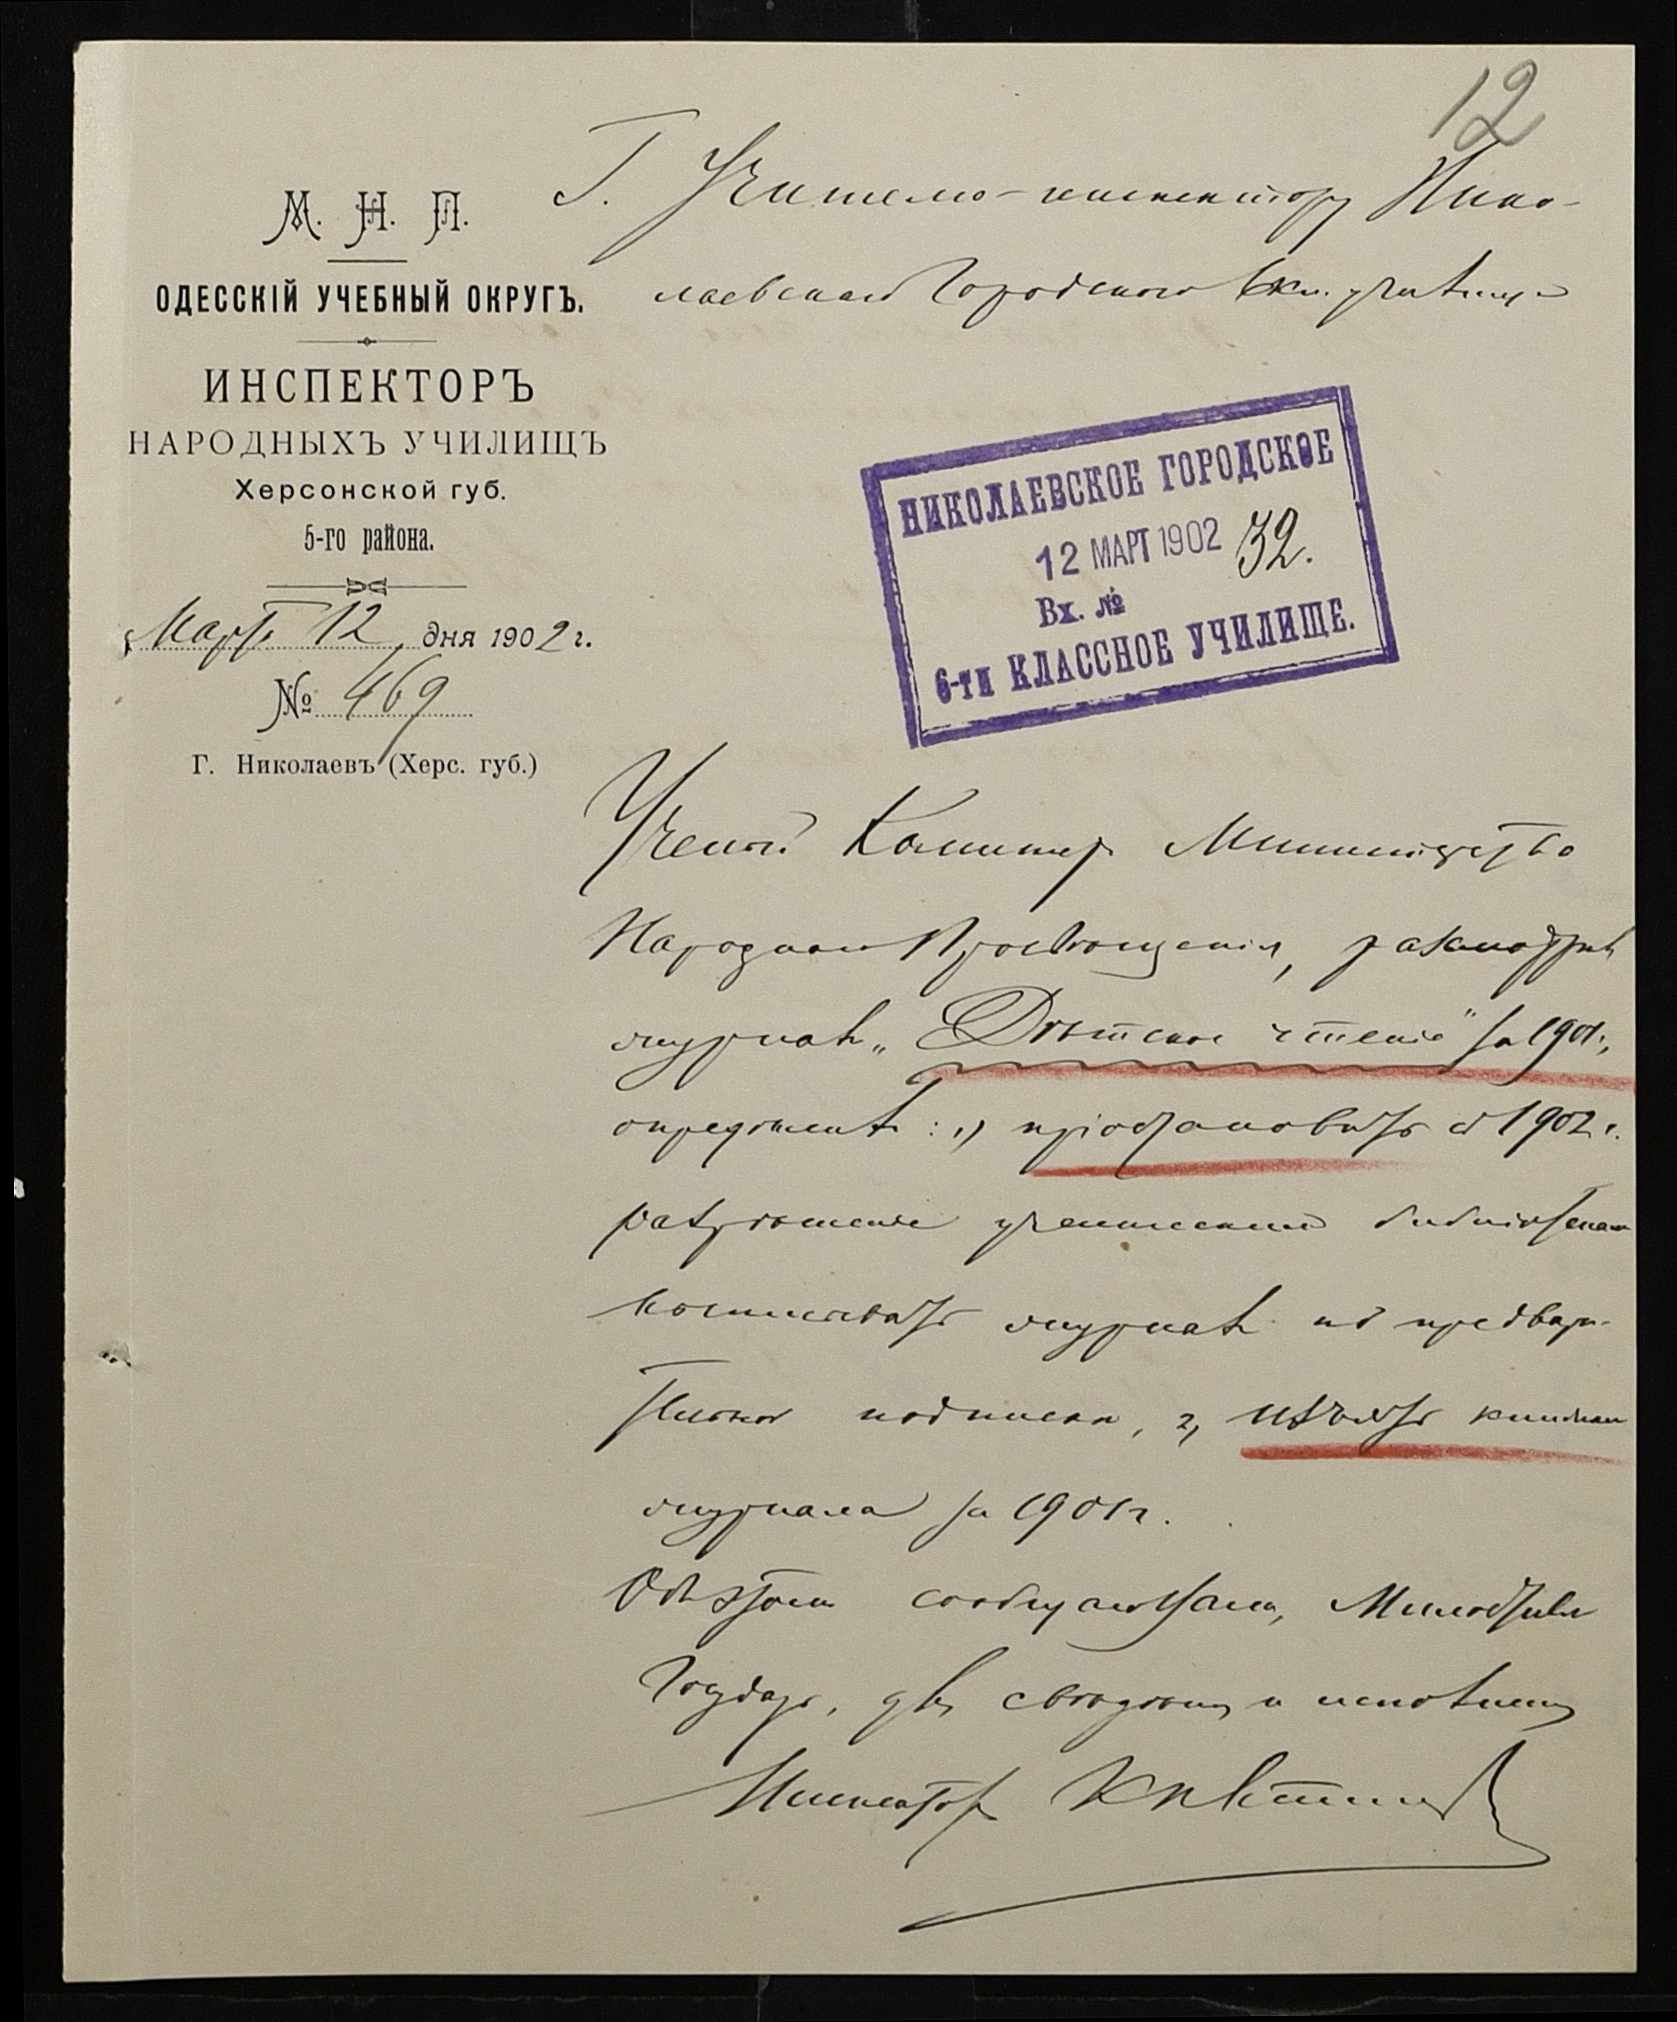 12
М. Н. П.
ОДЕССКІЙ УЧЕБНЫЙ ОКРУГЪ.
ИНСПЕКТОРЪ
НАРОДНЫХЪ УЧИЛИЩЪ
Херсонской губ.
5-го района.
Марта 12 дня 1902 г.
№ 469
Г. Николаевъ (Херс. губ.)
Г. Учителю-инспектору Нико-
лаевскаго Городского 6 кл. училища
НИКОЛАЕВСКОЕ ГОРОДСКОЕ
12 МАРТ 1902 32.
Вх. №
6-ти КЛАССНОЕ УЧИЛИЩЕ.
Ученый Комитетъ Министерства
Народнаго Просвѣщенія, разсмотрѣвъ
журналъ „Дѣтское чтеніе" за 1901 г.,
опредѣлилъ: 1) пріостановить съ 1902 г.
разрѣшеніе ученическимъ библіотекамъ
выписывать журналъ по предвари-
тельной подпискѣ, 2) изъять книжки
журнала за 1901 г.
Объ этомъ сообщаю Вамъ, Милостивый
Государь, для свѣдѣнія и исполненія
Инспекторъ